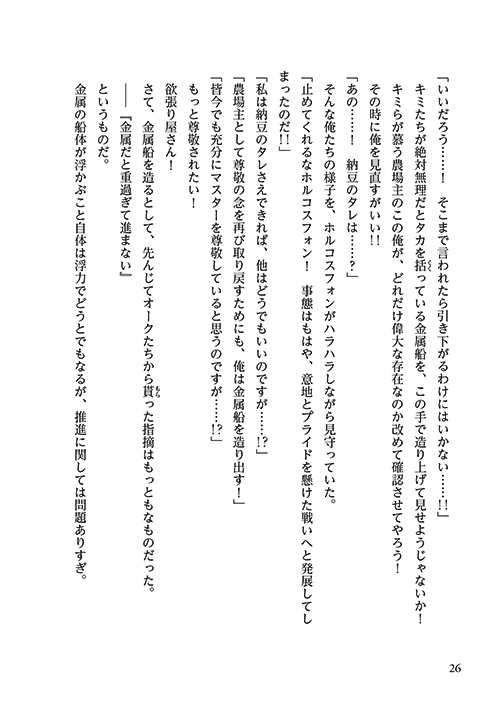 「いいだろう……！　そこまで言われたら引き下がるわけにはいかない……!!
キミたちが絶対無理だとタカを括っている金属船を、この手で造り上げて見せようじゃないか！
キミらが慕う農場主のこの俺が、どれだけ偉大な存在なのか改めて確認させてやろう！
その時に俺を見直すがいい!!
「あの……！　納豆のタレは……？」
そんな俺たちの様子を、ホルコスフォンがハラハラしながら見守っていた。
「止めてくれるなホルコスフォン！　事態はもはや、意地とプライドを懸けた戦いへと発展してし
まったのだ!!」
「私は納豆のタレさえできれば、他はどうでもいいのですが……!?」
「農場主として尊敬の念を再び取り戻すためにも、俺は金属船を造り出す！」
「皆今でも充分にマスターを尊敬していると思うのですが……!?」
もっと尊敬されたい！
欲張り屋さん！
さて、金属船を造るとして、先んじてオークたちから貰った指摘はもっともなものだった。
――『金属だと重過ぎて進まない』
というものだ。
金属の船体が浮かぶこと自体は浮力でどうとでもなるが、推進に関しては問題ありすぎ。
26